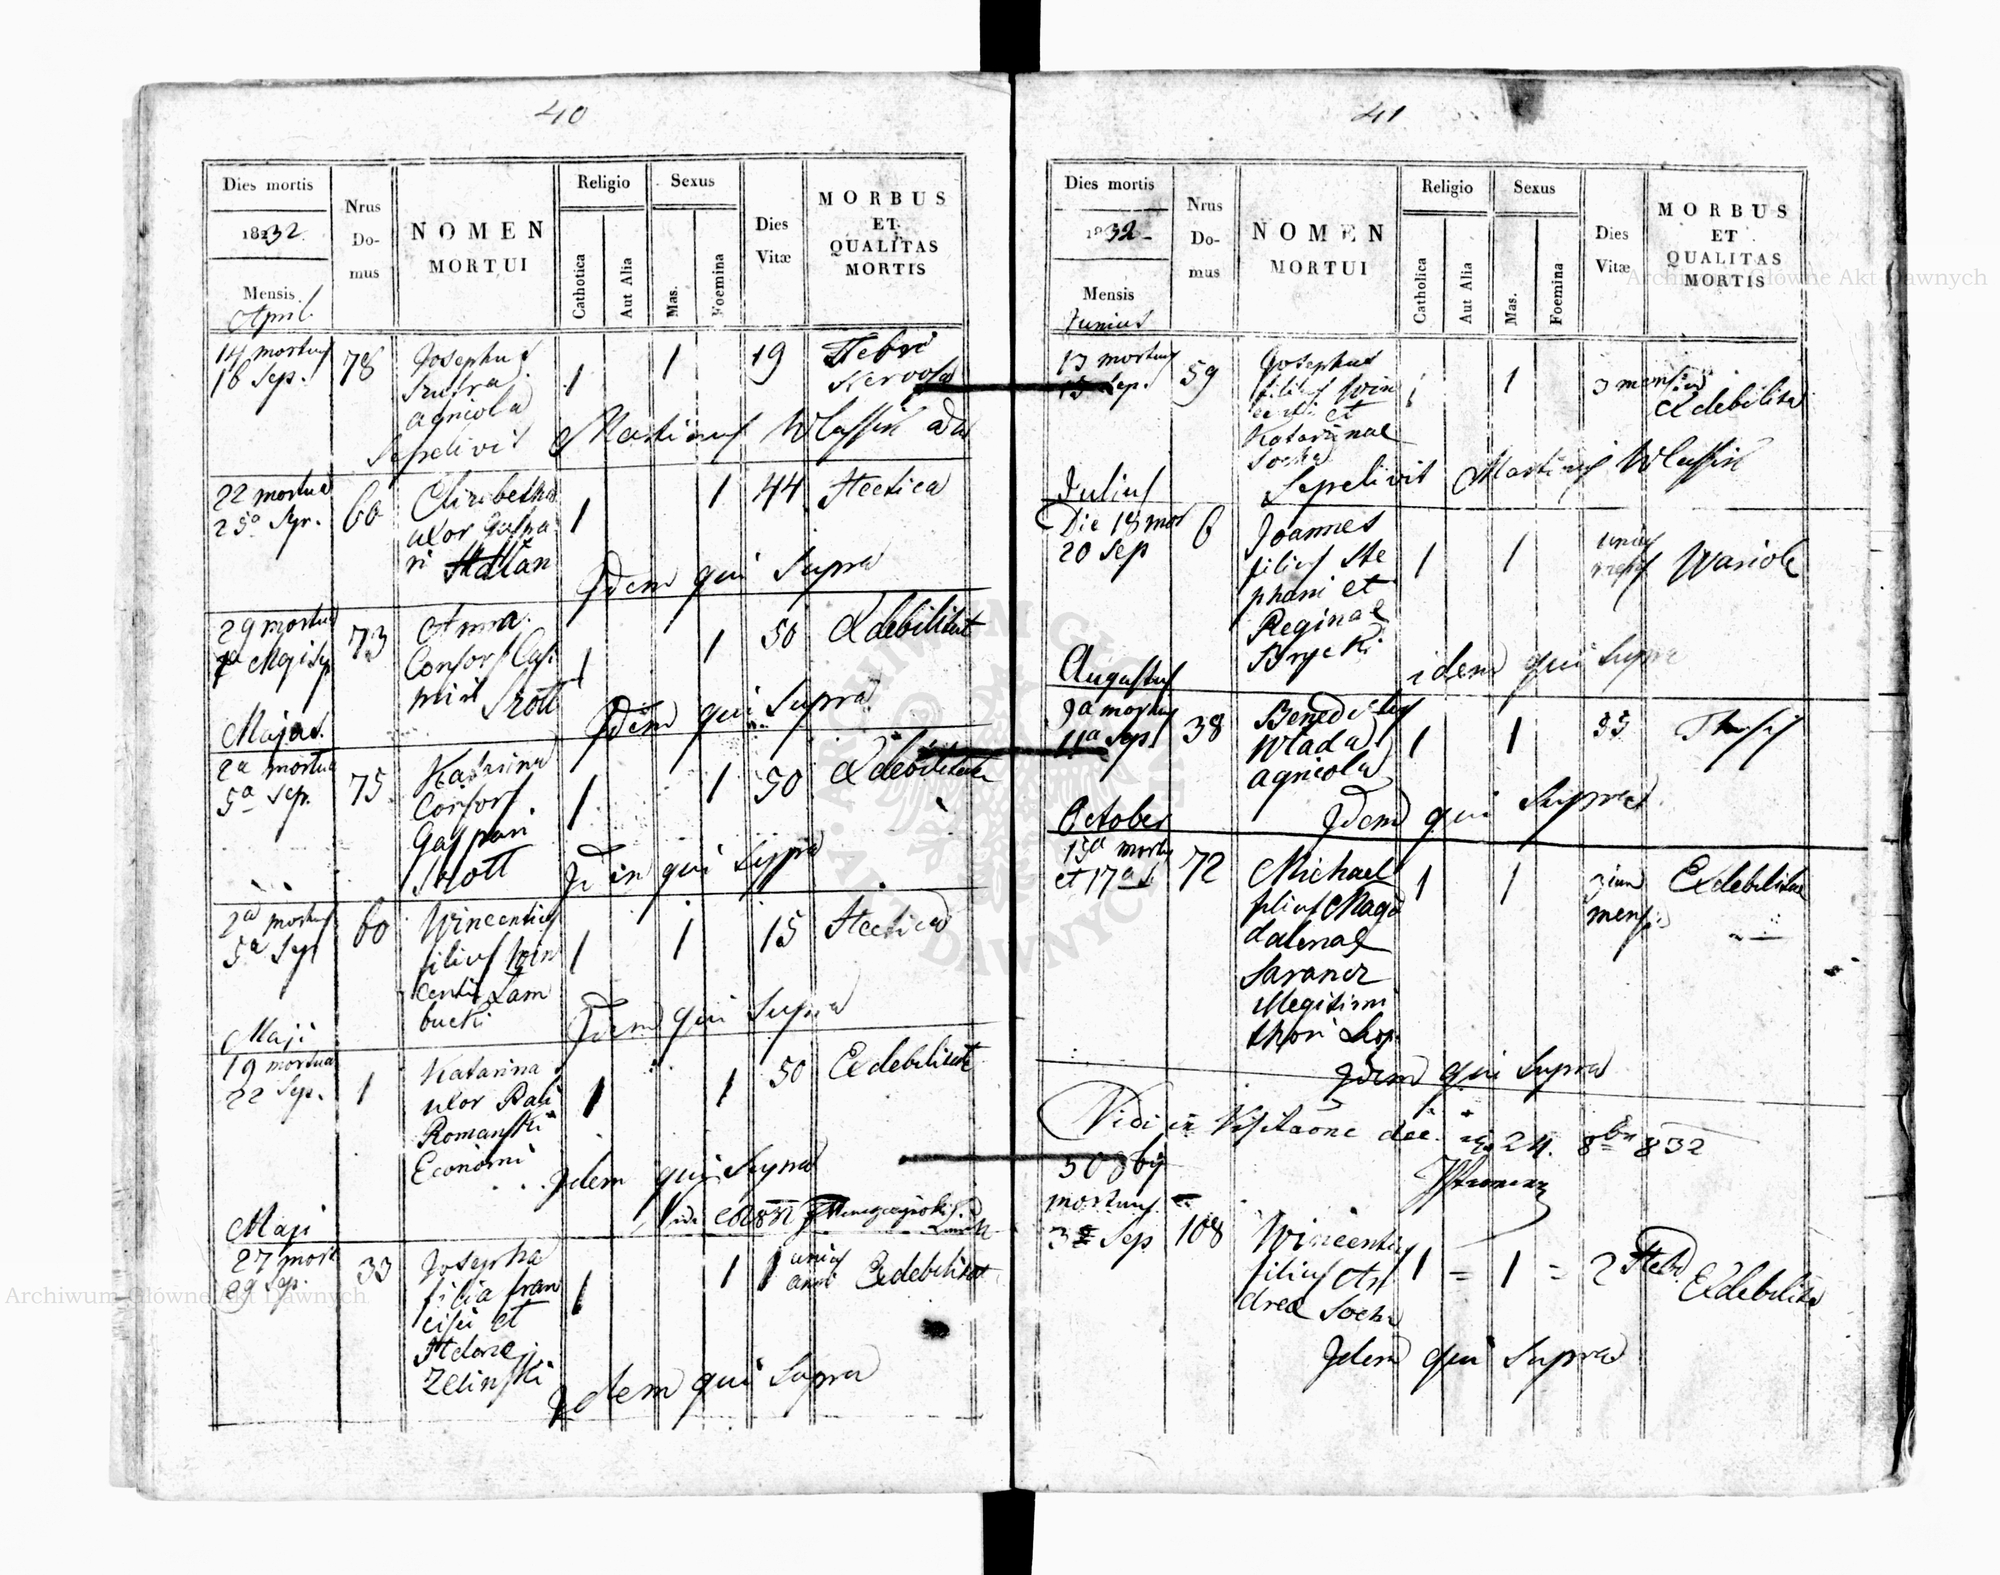 40
Dies mortis
1832.
Mensis
April.
Nrus
Do-
mus
NOMEN
MORTUI
Religio
Catholica
Aut Alia
Sexus
Mas.
Foemina
Dies
Vitæ
MORBUS
ET
QUALITAS
MORTIS
14 mortuus
16 Sep.
78
Josephus
agricola
1
1
19
Febri
Nervosa
Sepelivit Martinus
22 mortua
25a Sep.
60
Elizabetha
uxor Gaspa
ri
1
1
44
Hectica
Idem qui Supra
29 mortua
Maji Sep
73
Anna
Consors Casi
miri Srott
1
1
50
Ex debilitat
Idem qui Supra
Majus.
2a mortua
5a Sep.
75
Katarina
Consors
Gaspari
Srott
1
1
50
Ex debilitate
Idem qui Supra
2a mortuus
5a Sep
60
Wincentius
filius Win
centi Lam
bucki
1
1
15
Hectica
Idem qui Supra
Maji
19 mortua
22 Sep.
1
Katarina
uxor Pauli
Romanski
Economi
1
1
50
Ex debilitate
Idem qui Supra
Maji
27 mort
29 Sep.
33
Josepha
filia Fran
cisci et
Zelinski
1
1
1 unius
anni
Ex debilitat
Idem qui Supra
41
Dies mortis
1832
Mensis
Junius
Nrus
Do-
mus
NOMEN
MORTUI
Religio
Catholica
Aut Alia
Sexus
Mas.
Foemina
Dies
Vitæ
MORBUS
ET
QUALITAS
MORTIS
13 mortuus
15 Sep.
59
Josephus
filius Win
centi et
Katarinae
Socha
1
1
3 mensium
Ex debilita
Sepelivit Martinus
Julius
Die 18 mor
20 Sep
6
Joannes
filius Ste
phani et
Reginae
Brycki
1
1
unius
Wariole
idem qui supra
Augustus
mortuus
11a Sep.
38
Benedictus
Wlada
agricola
1
1
Idem qui Supra
October
15a mortuus
et 17a S.
72
Michael
filius Mag
dalenae
Illegitimi
thori
1
1
mensis
Ex debilitae
Idem qui Supra
Vidi in Visitaone 24. 8bris 832
mortuus
Sep
108
Wincentius
filius An
dreae Socha
1 = 1 = 2
Ex debilita
Idem qui Supra
Archiwum Główne Akt Dawnych
Archiwum Główne Akt Dawnych
ARCHIWUM GŁÓWNE AKT DAWNYCH